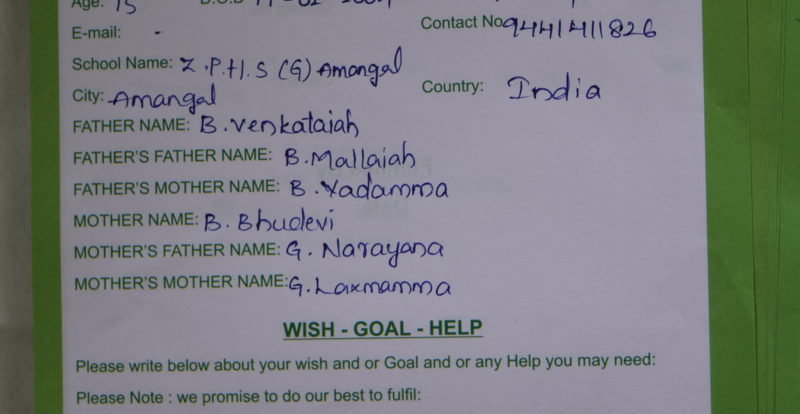 Age: 15
E-mail: -
Contact No 9441411826
School Name: Z.P.H.S (G) Amangal
City: Amangal
Country: India
FATHER NAME: B.Venkataiah
FATHER'S FATHER NAME: B.Mallaiah
FATHER'S MOTHER NAME: B.Yadamma
MOTHER NAME: B.Bhudevi
MOTHER'S FATHER NAME: G.Narayana
MOTHER'S MOTHER NAME: G.Laxmamma
WISH - GOAL - HELP
Please write below about your wish and or Goal and or any Help you may need:
Please Note : we promise to do our best to fulfil: